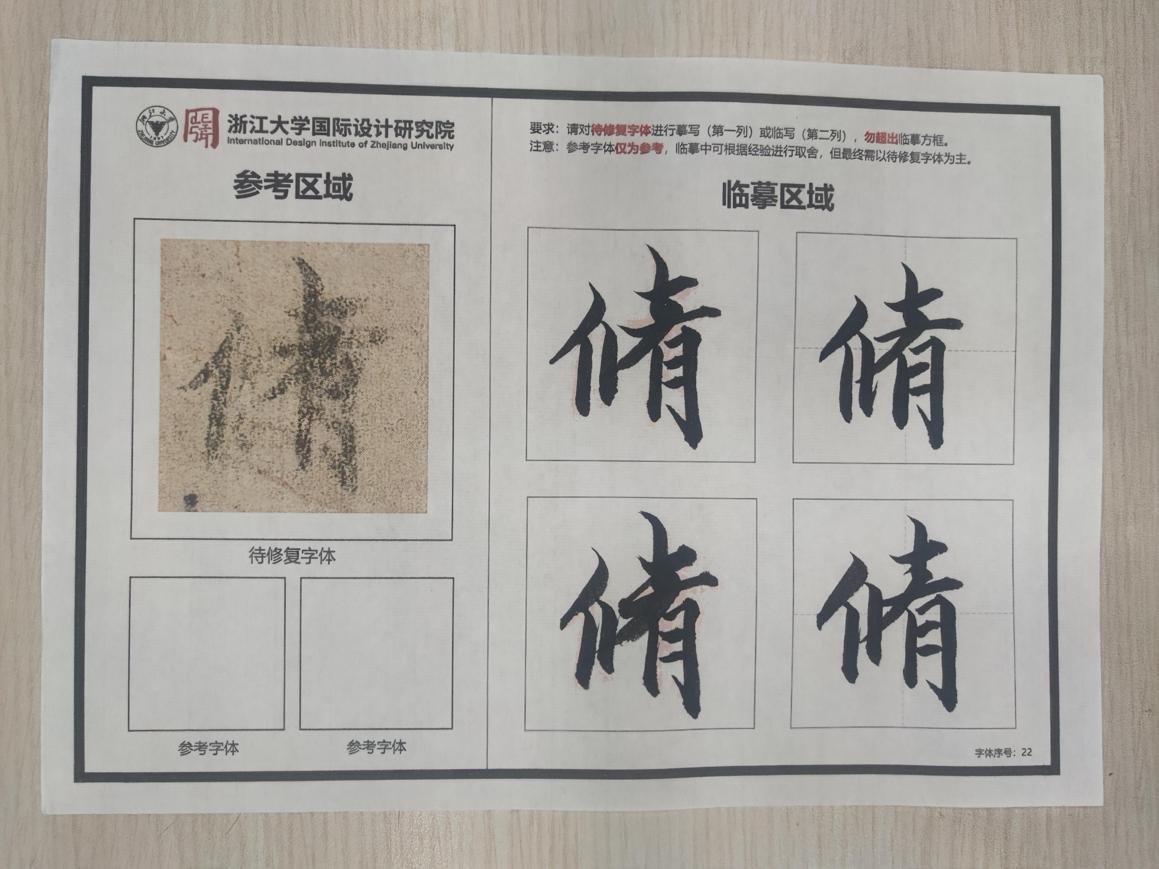 浙江大学国际设计研究院
International Design Institute of Zhejiang University
参考区域
脩
待修复字体
参考字体
参考字体
要求：请对待修复字体进行摹写（第一列）或临写（第二列），勿超出临摹方框。
注意：参考字体仅为参考，临摹中可根据经验进行取舍，但最终需以待修复字体为主。
临摹区域
脩 脩
脩 脩
字体序号：22